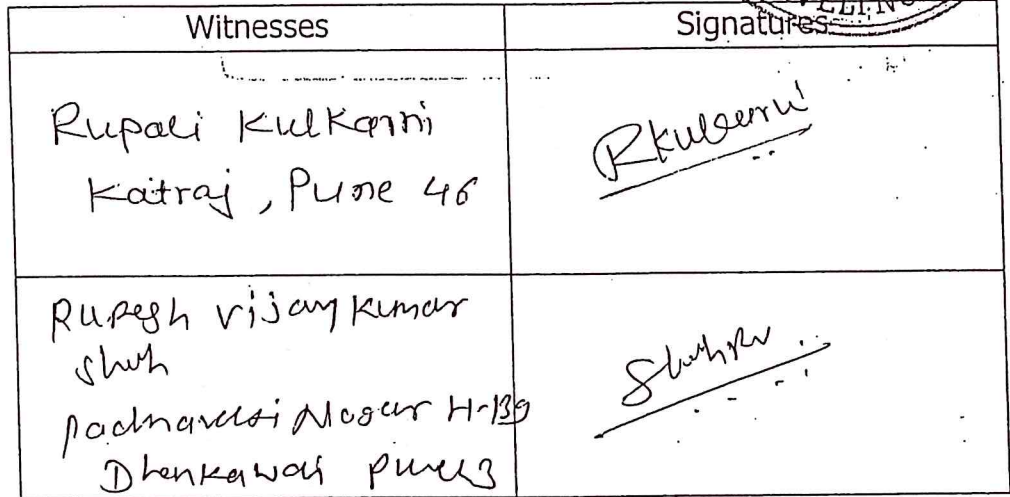 Witnesses Signatures
Rupali Kulkarni
Katraj, Pune 46
Rkulkarni
Rupesh vijaykumar
shah
padmavati Nagar H-139
Dhankawdi Pune 43
Shahrv